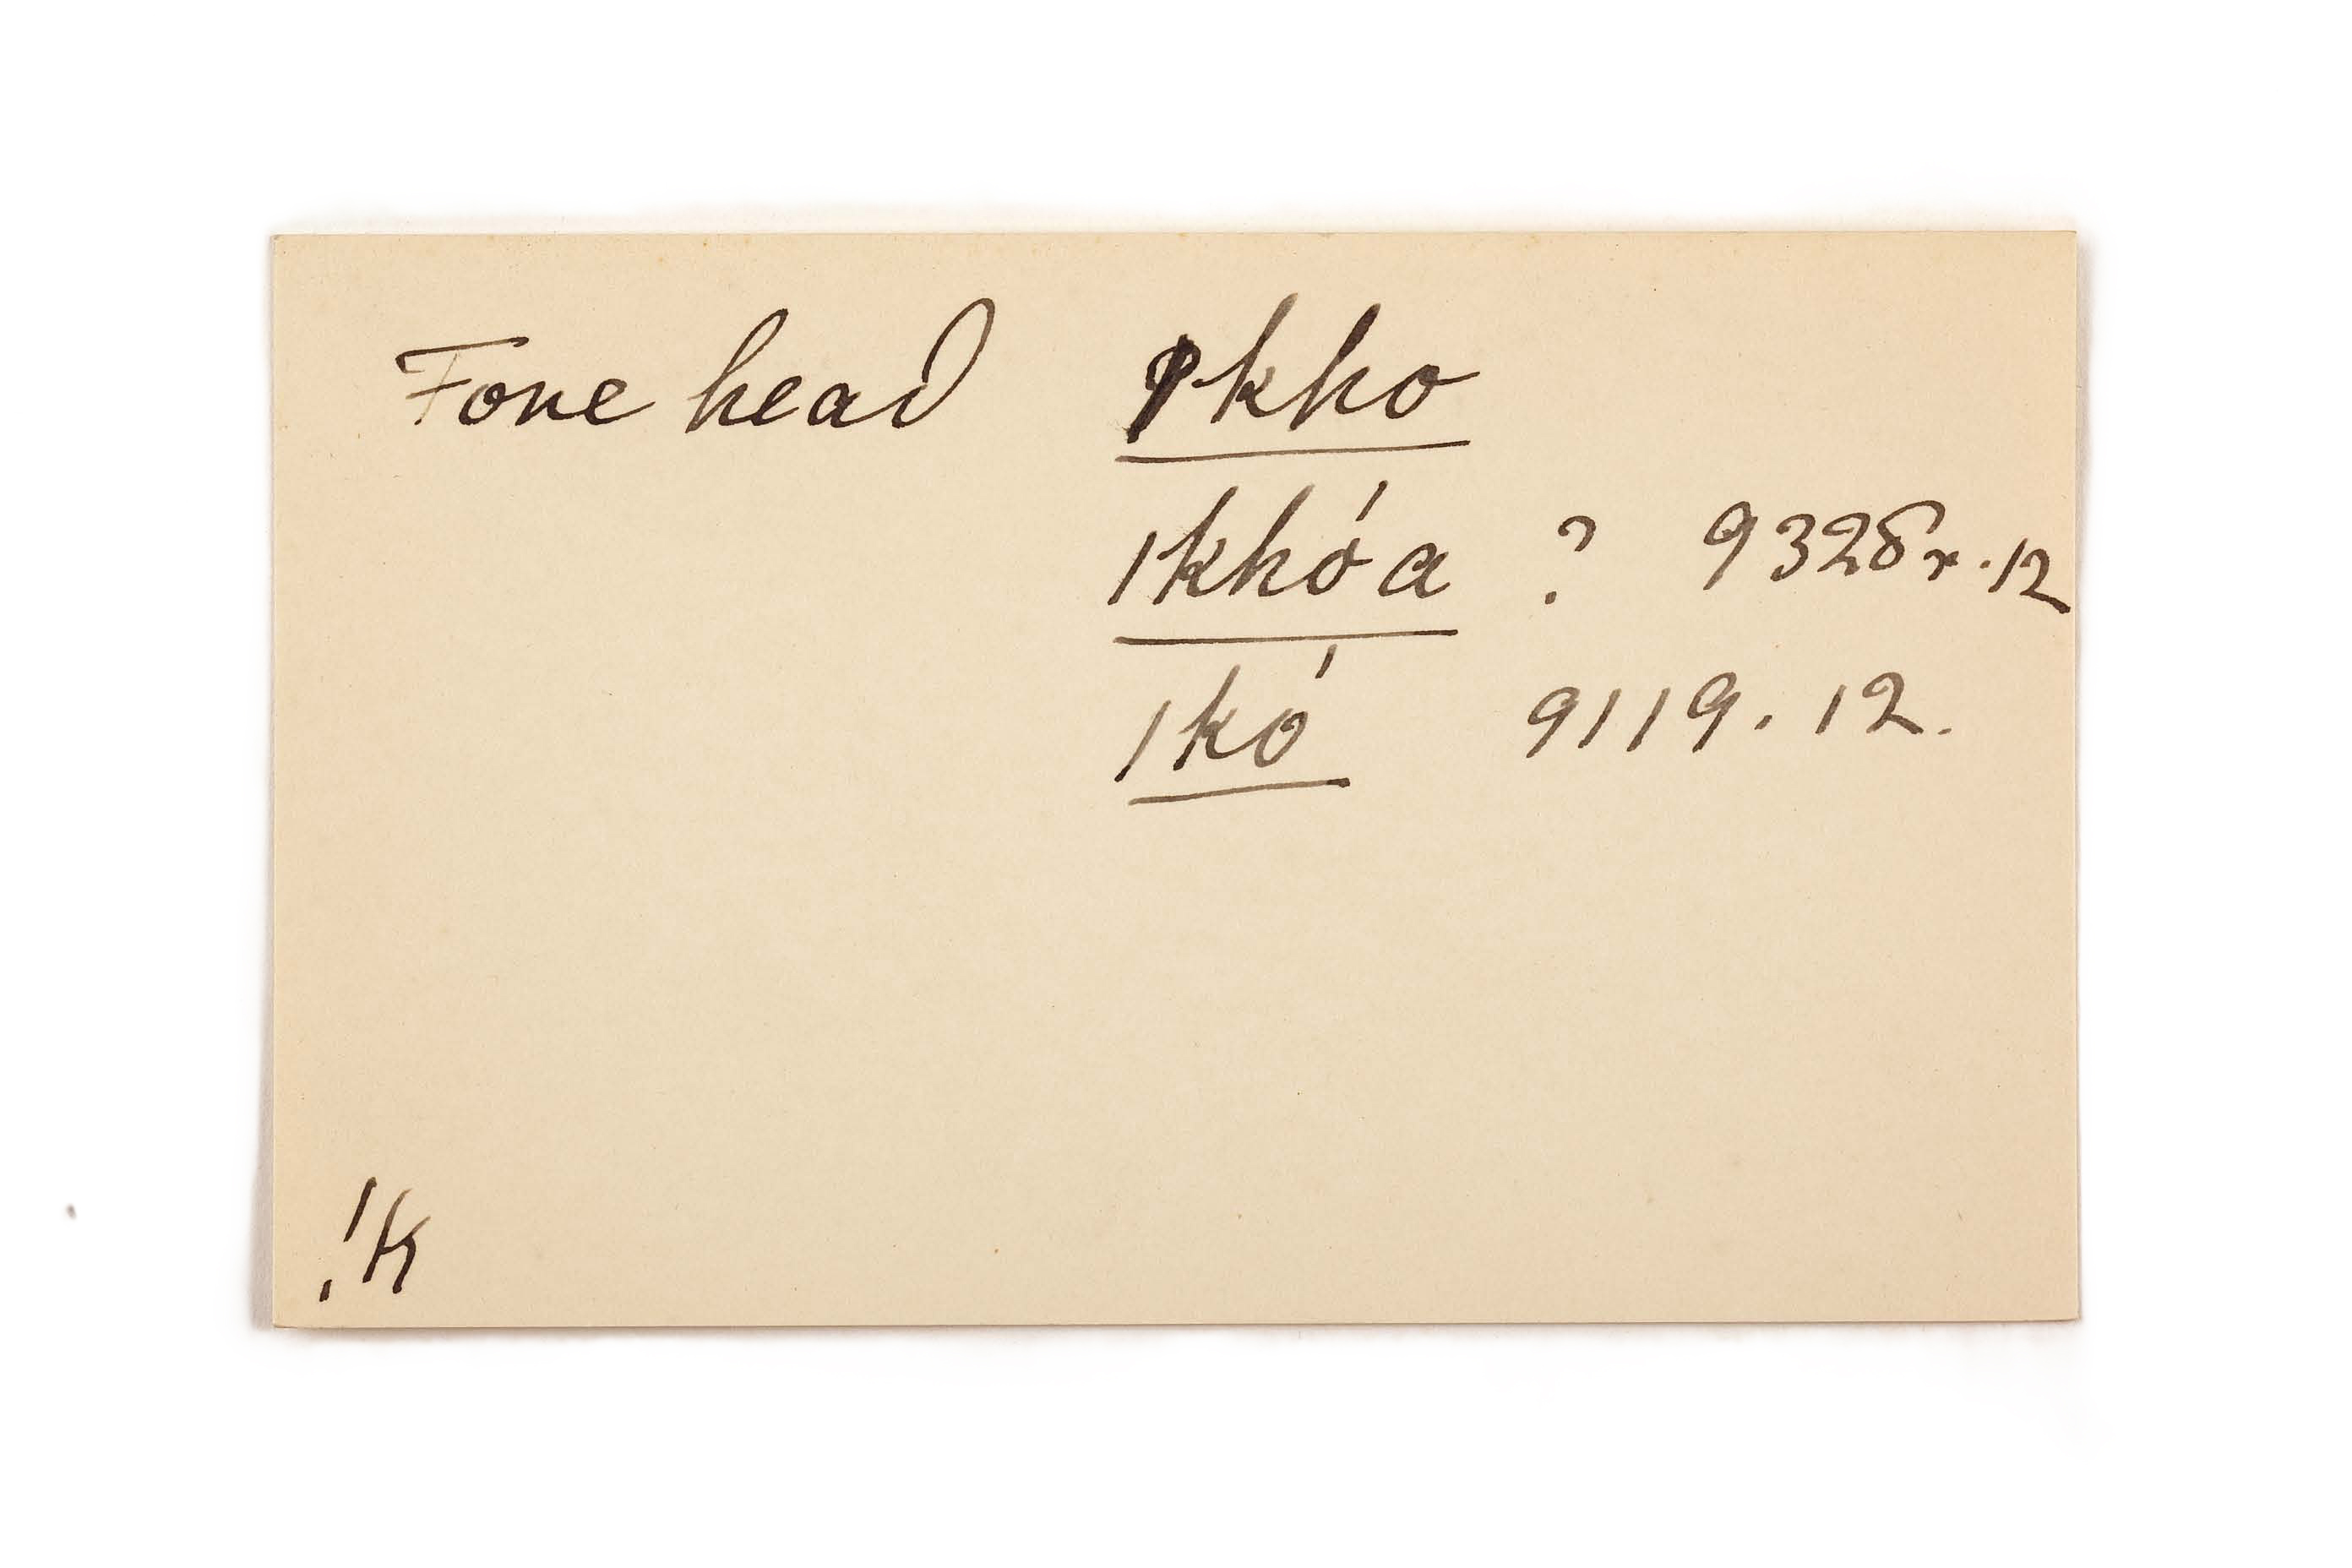 Fore head ǀkho
ǀkhóa ? 9328x.12
ǀkó 9119.12.
!k